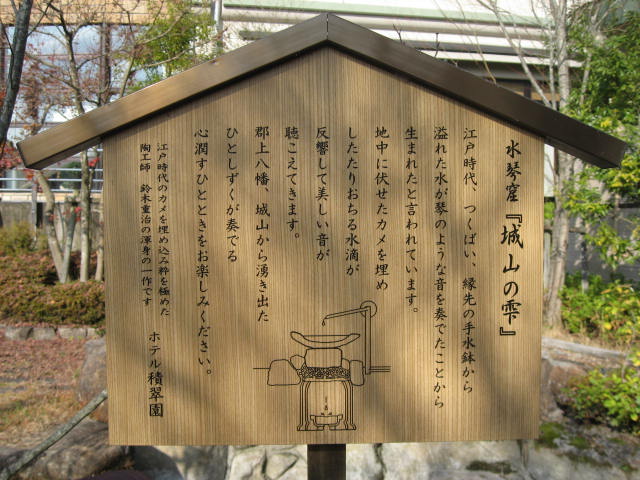 水琴窟『城山の雫』
江戸時代、つくばい、縁先の手水鉢から
溢れた水が琴のような音を奏でたことから
生まれたと言われています。
地中に伏せたカメを埋め
したたりおちる水滴が
反響して美しい音が
聴こえてきます。
郡上八幡、城山から湧き出た
ひとしずくが奏でる
心潤すひとときをお楽しみください。
江戸時代のカメを埋め込み粋を極めた
陶工師 鈴木重治の渾身の一作です
ホテル積翠園